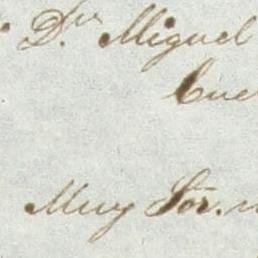 Dn. Miguel
Cue
Muy Sor. m